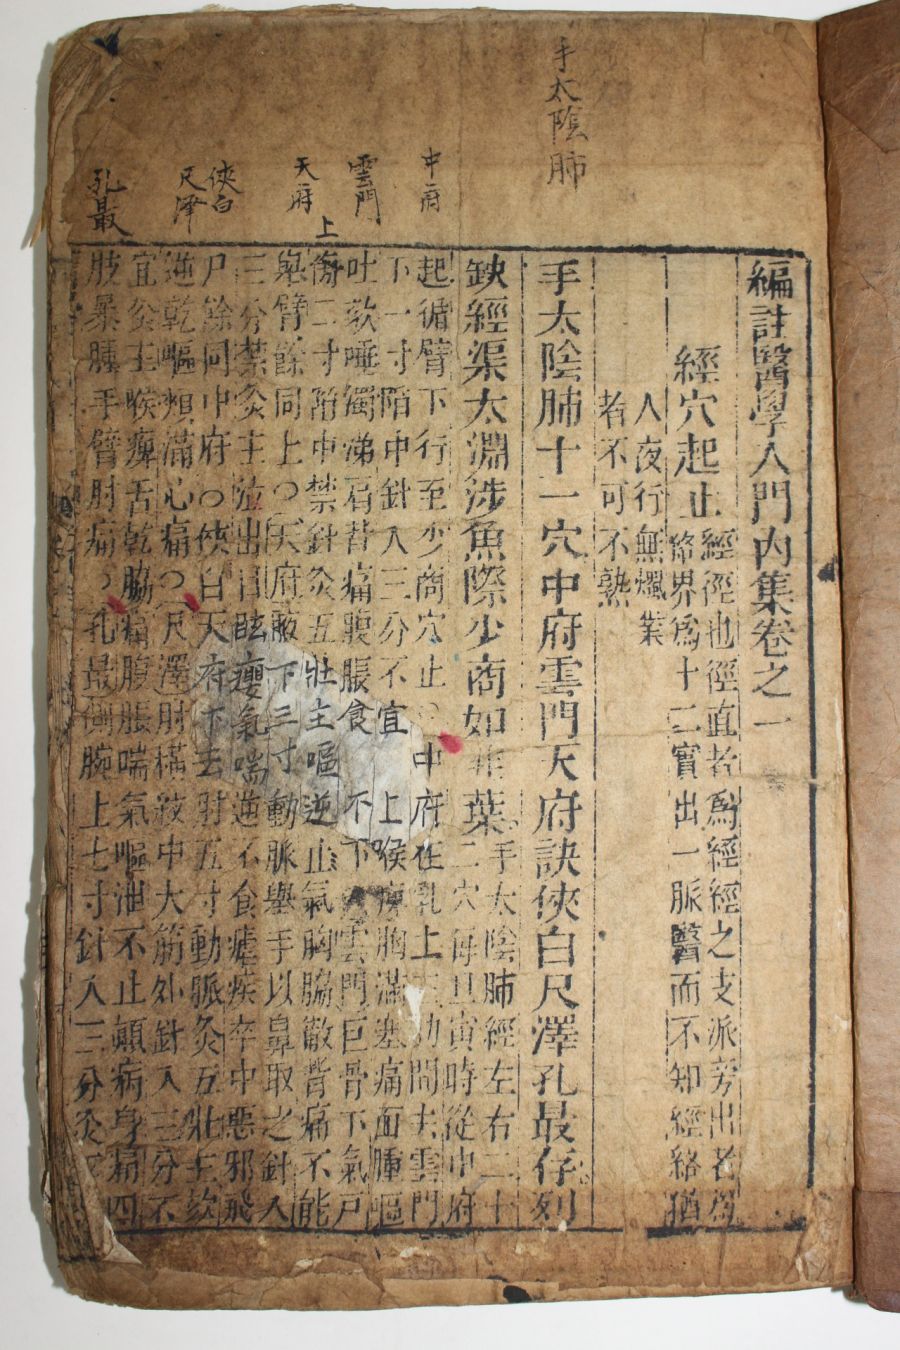 手太陰肺
中府
雲門
天府
上
俠白
尺澤
孔最
編註醫學入門內集卷之一
經穴起止
經徑也徑直者爲經經之支派旁出者爲
絡界爲十二實出一脈醫而不知經絡猶
人夜行無燭業
者不可不熟
手太陰肺十一穴中府雲門天府訣俠白尺澤孔最存列
缺經渠太淵涉魚際少商如韭葉
手太陰肺經左右二十
二穴每旦寅時從中府
起循臂下行至少商穴止○中府在乳上三肋間去雲門
下一寸陷中針入三分不宜 上喉痺胸滿塞痛面腫嘔
吐欬唾濁涕肩背痛腹脹食 不下○雲門巨骨下氣戶
傍二寸陷中禁針灸五壯主嘔逆止氣胸脇徹背痛不能
擧臂餘同上○天府腋下三寸動脈擧手以鼻取之針入
三分禁灸主泣出目眩癭氣喘逆不食瘧疾卒中惡邪飛
尸餘同中府○俠白天府下去肘五寸動脈灸五壯主欬
逆乾嘔煩滿心痛○尺澤肘橫紋中大筋外針入三分不
宜灸主喉痺舌乾脇痛腹脹喘氣嘔泄不止顚病身痛四
肢暴腫手臂肘痛○孔最側腕上七寸針入三分灸